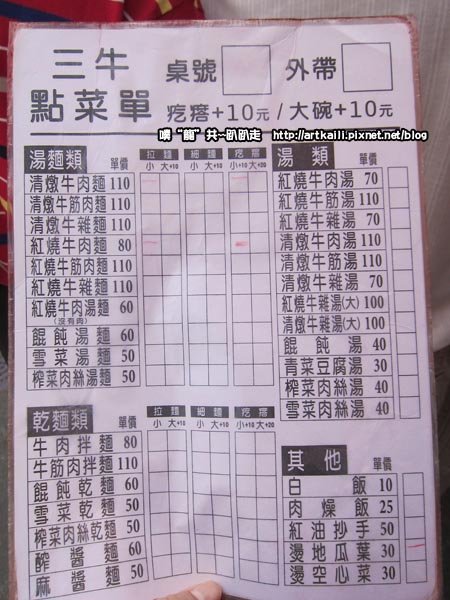 三牛 桌號 外帶
點菜單 疙瘩+10元/大碗+10元
噢"龍"共~趴趴走 http://artkaili.pixnet.net/blog
湯麵類 單價 拉麵 細麵 疙瘩
小 大+10 小 大+10 小+10 大+20
清燉牛肉麵 110
清燉牛筋肉麵 110
清燉牛雜麵 110
紅燒牛肉麵 80
紅燒牛筋肉麵 110
紅燒牛雜麵 110
紅燒牛肉湯麵 60
(沒有肉)
餛飩湯麵 60
雪菜湯麵 50
榨菜肉絲湯麵 50
乾麵類 單價 拉麵 細麵 疙瘩
小 大+10 小 大+10 小+10 大+20
牛肉拌麵 80
牛筋肉拌麵 110
餛飩乾麵 60
雪菜乾麵 50
榨菜肉絲乾麵 50
酢醬麵 60
麻醬麵 50
湯類 單價
紅燒牛肉湯 70
紅燒牛筋湯 110
紅燒牛雜湯 70
清燉牛肉湯 110
清燉牛筋湯 110
清燉牛雜湯 70
紅燒牛雜湯(大) 100
清燉牛雜湯(大) 100
餛飩湯 40
青菜豆腐湯 30
榨菜肉絲湯 40
雪菜肉絲湯 40
其他 單價
白飯 10
肉燥飯 25
紅油抄手 50
燙地瓜葉 30
燙空心菜 30